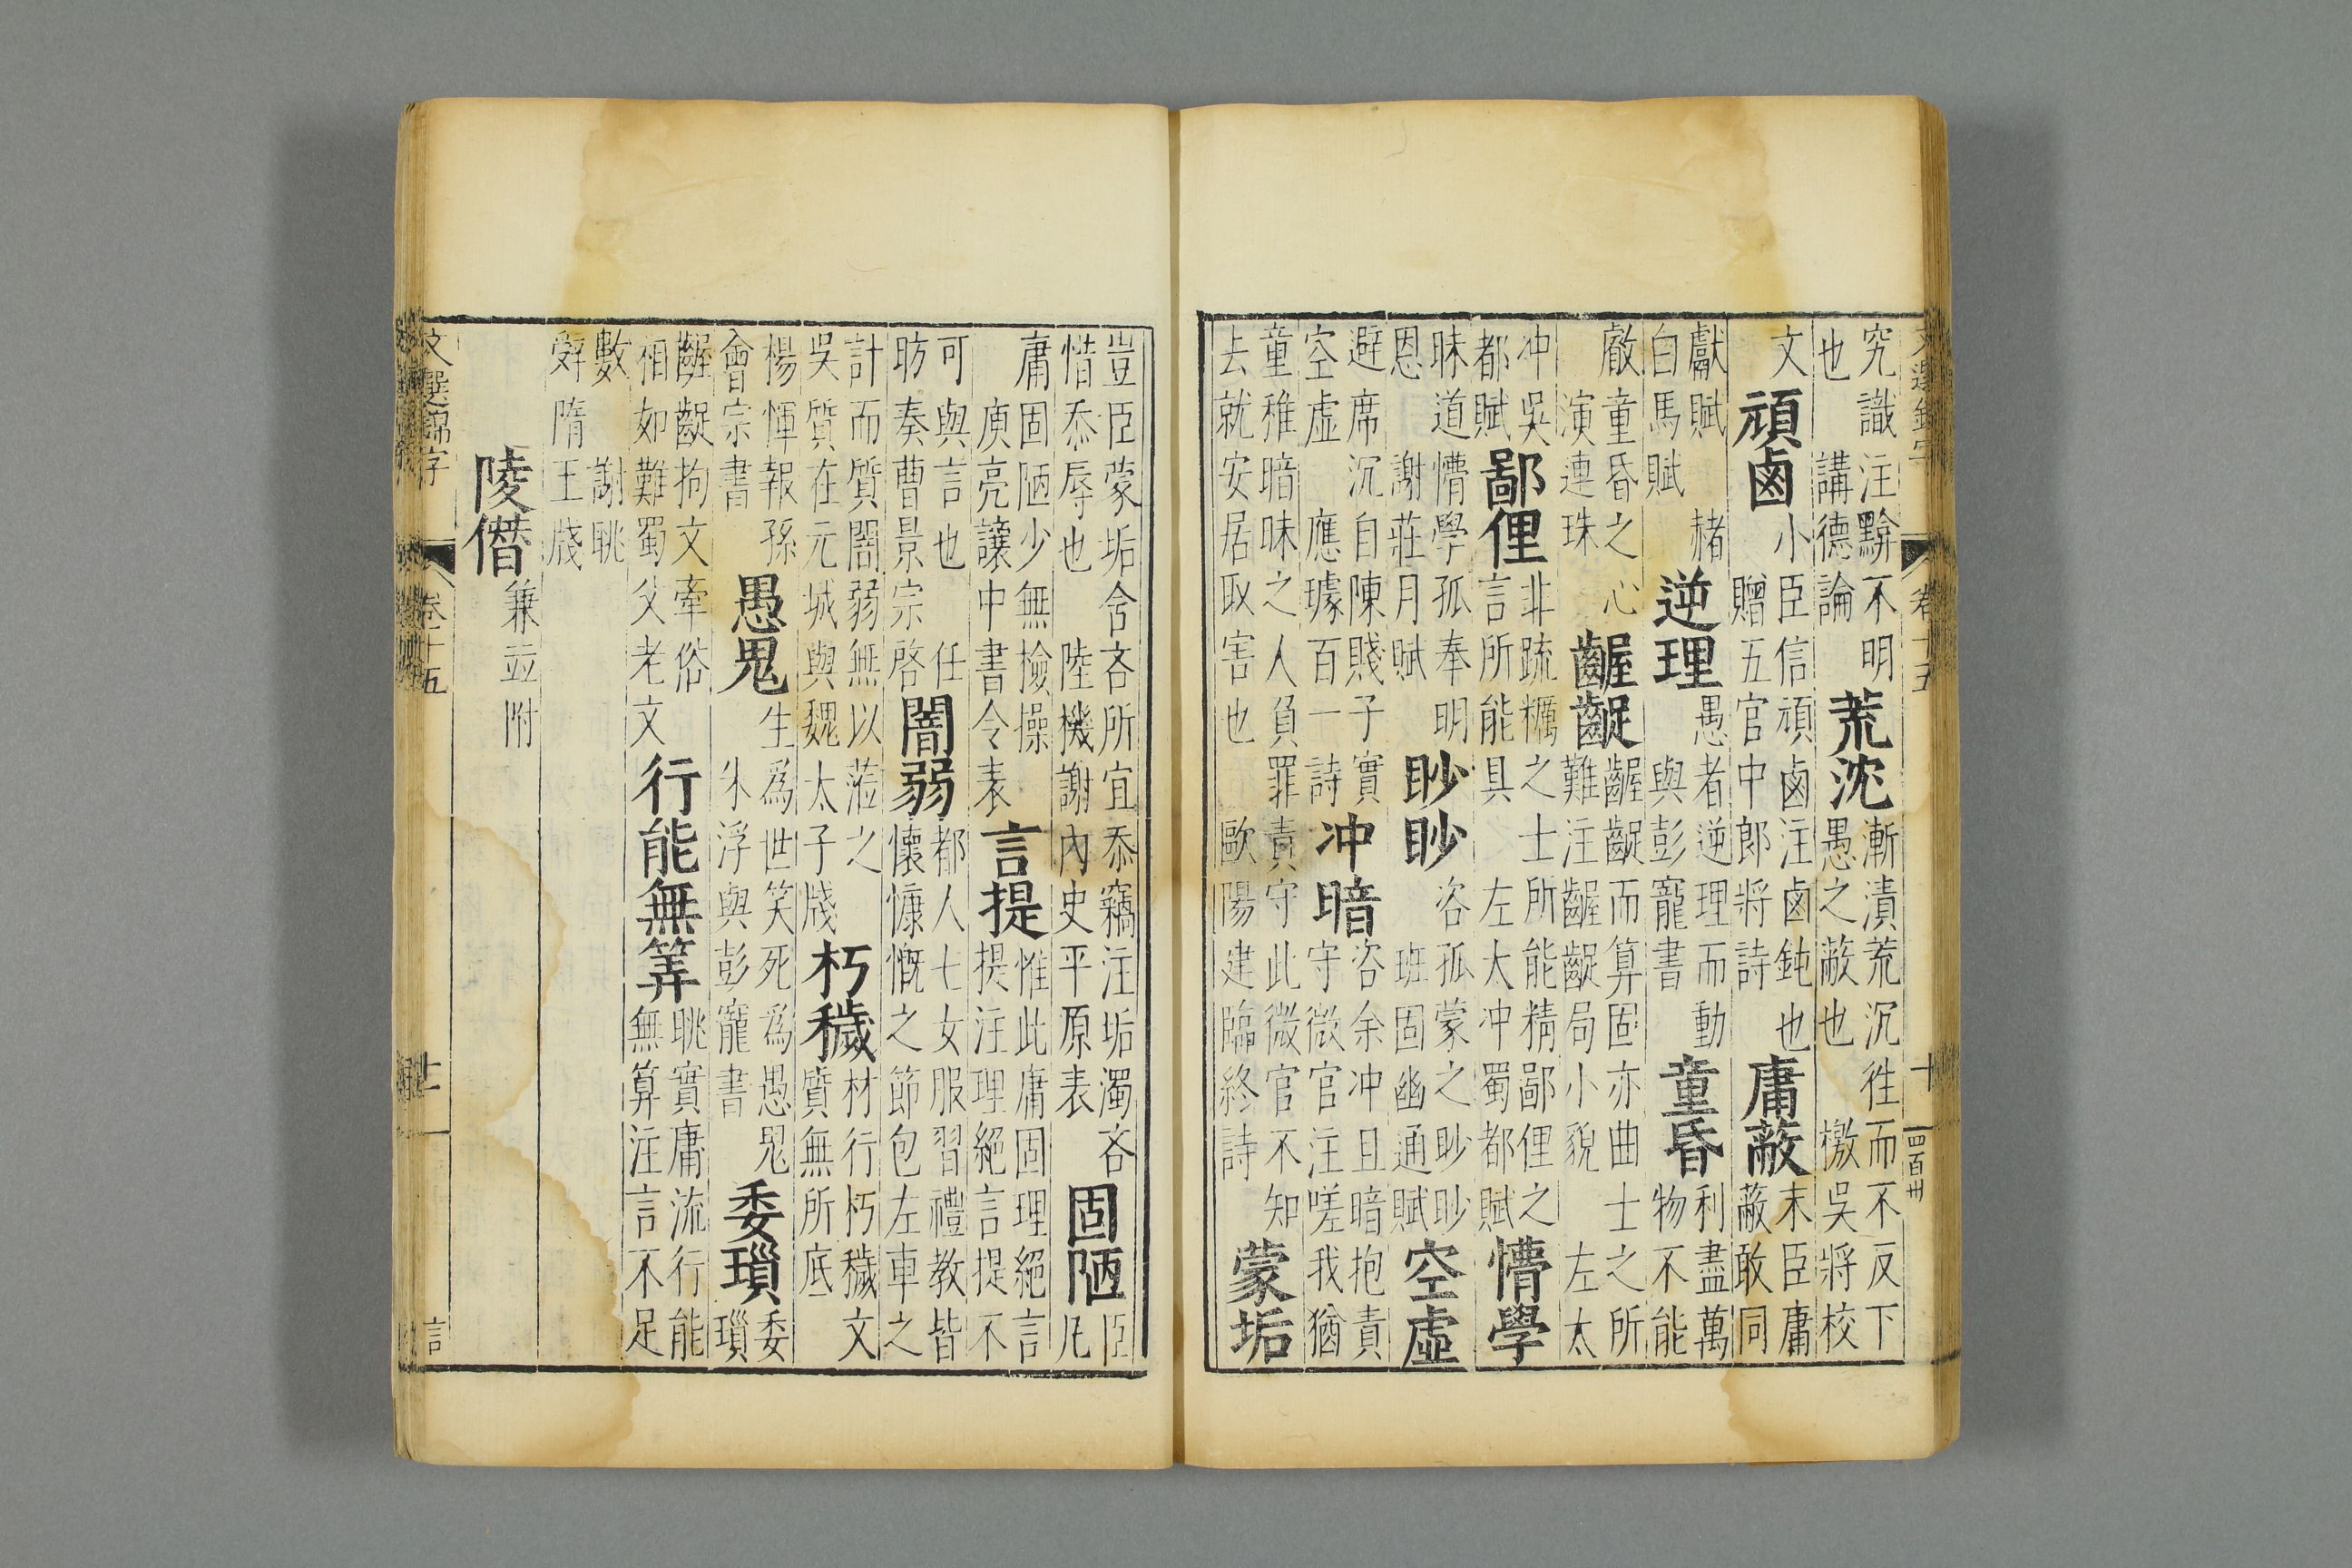 文選錦字 卷十五 十 四百卅
究識注黭不明
也 講德論
荒沈
漸漬荒沉徃而不反下
愚之蔽也 檄吳將校
文
頑鹵
小臣信頑鹵注鹵鈍也
贈五官中郎將詩
庸蔽
末臣庸
蔽敢同
獻賦 赭
白馬賦
逆理
愚者逆理而動
與彭寵書
童昏
利盡萬
物不能
厳童昏之心
演連珠
齷齪
齷齪而算固亦曲士之所
難注齷齪局小貌 左太
冲吳
都賦
鄙俚
非疏糲之士所能精鄙俚之
言所能具 左太冲蜀都賦
懵學
昧道懵學孤奉明
恩 謝莊月賦
眇眇
咨孤蒙之眇眇
班固幽通賦
空虛
避席沉自陳賤子實
空虛 應璩百一詩
冲暗
咨余冲且暗抱責
守微官注嗟我猶
童稚暗昧之人負罪責守此微官不知
去就安居取害也 歐陽建臨終詩
蒙垢
豈臣蒙垢含吝所宜忝竊注垢濁吝
惜忝辱也 陸機謝內史平原表
固陋
臣
凡
庸固陋少無檢操
庾亮讓中書令表
言提
惟此庸固理絕言
提注理絕言提不
可與言也 任
昉奏曹景宗啓
闇弱
都人士女服習禮教皆
懷慷慨之節包左車之
計而質闇弱無以蒞之
吳質在元城與魏太子牋
朽穢
材行朽穢文
質無所底
楊惲報孫
會宗書
愚鬼
生為世笑死為愚鬼
朱浮與彭寵書
委瑣
委
瑣
齷齪拘文牽俗
相如難蜀父老文
行能無筭
眺實庸流行能
無算注言不足
數 謝眺
辤隋王牋
陵僭
兼並附
文選錦字 卷十五 十一 言